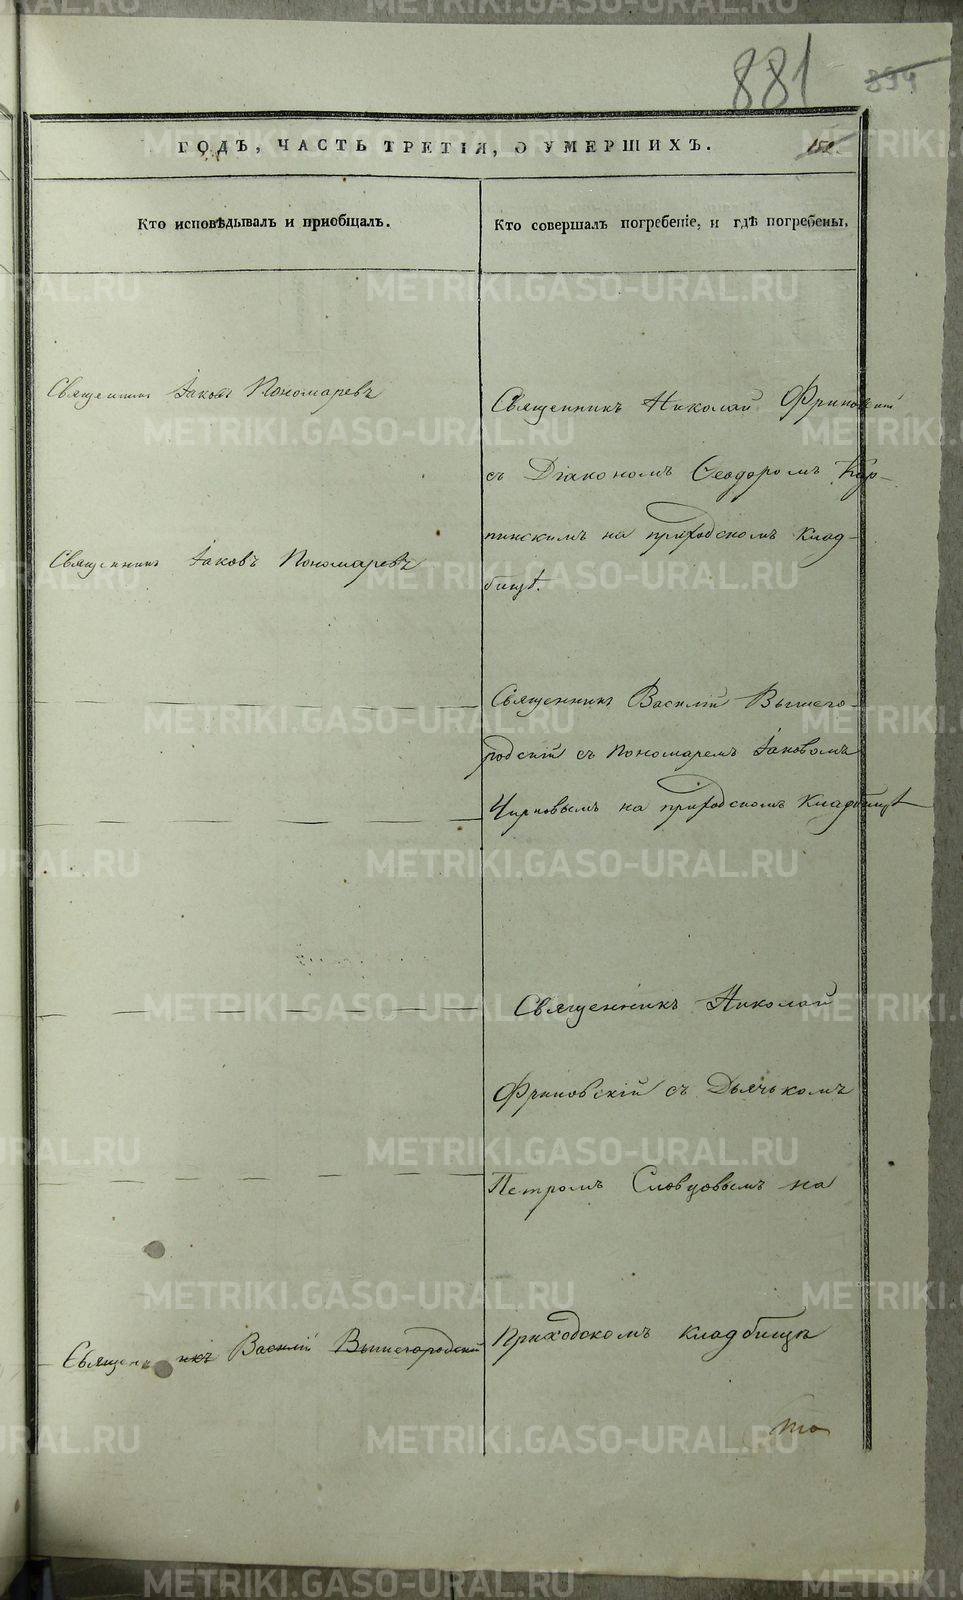 881 894
ГОДЪ, ЧАСТЬ ТРЕТІЯ, О УМЕРШИХЪ.
Кто исповѣдывалъ и пріобщалъ.
Кто совершалъ погребеніе, и гдѣ погребены.
Священникъ Іаковъ Пономаревъ
Священникъ Іаковъ Пономаревъ
Священникъ Василій Вышегородскій
Священникъ Николай Фриновскій
съ Діакономъ Ѳеодоромъ Кар-
пинскимъ на приходскомъ клад-
бищѣ.
Священникъ Василій Вышего-
родскій съ Пономаремъ Іаковомъ
Чирковымъ на приходскомъ кладбищѣ
Священникъ Николай
Фриновскій съ Дьячькомъ
Петромъ Словцовымъ на
Приходскомъ кладбищѣ
METRIKI.GASO-URAL.RU